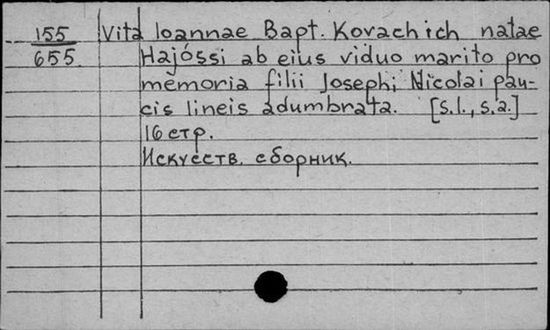 155 Vita Ioannae Bapt. Kovachich natae
655 Hajóssi ab eius viduo marito pro
memoria filii Josephi Nicolai pau-
cis lineis adumbrata. [s.l., s.a.]
16 стр.
Искусств. сборник.